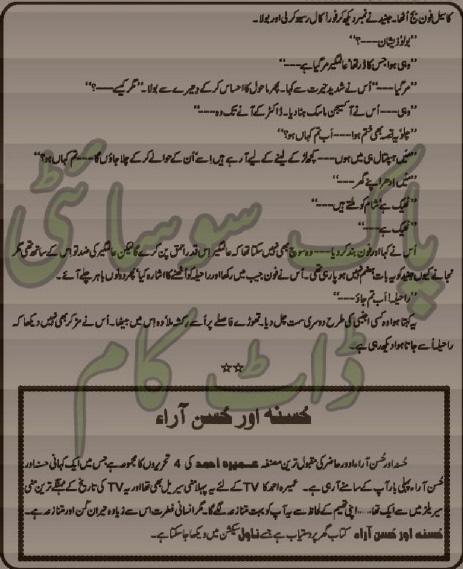 کا سیل فون بج اُٹھا۔ جنید نے نمبر دیکھ کر فوراً کال ریسیو کر لی اور بولا۔
”بولو ذیشان----؟“
”وہی ہوا جس کا ڈر تھا، عالمگیر مر گیا ہے----“
”مر گیا----“ اُس نے شدید حیرت سے کہا۔ پھر ماحول کا احساس کر کے دھیرے سے بولا۔ ”مگر کیسے----؟“
”وہی---- اُس نے آکسیجن ماسک ہٹا دیا۔ ڈاکٹر کے آنے تک وہ----“
”چلو یہ قصہ بھی ختم ہوا---- اب تم کہاں ہو؟“
”میں ہسپتال ہی میں ہوں---- کچھ لوگ لینے کے لیے آ رہے ہیں اسے، اُن کے حوالے کر کے چلا جاؤں گا---- تم کہاں ہو؟“
”میں ادھر اپنے گھر----“
”ٹھیک ہے شام کو ملتے ہیں----“
”ٹھیک ہے----“
اُس نے کہا اور فون بند کر دیا---- وہ سوچ بھی نہیں سکتا تھا کہ عالمگیر اس قدر احمق پن کرے گا لیکن عالمگیر کی ضد تو اس کے ساتھ تھی مگر
نجانے کیوں جنید کو یہ بات ہضم نہیں ہو پا رہی تھی۔ اُس نے فون جیب میں رکھا اور راحیلہ کو اُٹھنے کا اشارہ کیا پھر دونوں باہر چلے آئے۔
”راحیلہ! اب تم جاؤ----“
یہ کہتا ہوا وہ کسی اجنبی کی طرح دوسری سمت چل دیا۔ تھوڑے فاصلے پر اُسے رکشہ ملا وہ اس میں بیٹھا۔ اُس نے مڑ کر بھی نہیں دیکھا کہ
راحیلہ اُسے جاتا ہوا دیکھ رہی ہے۔
☆☆
حُسنہ اور حُسن آراء
حُسنہ اور حُسن آراء دورِ حاضر کی مقبول ترین مصنفہ عمیرہ احمد کی 4 تحریروں کا مجموعہ ہے جس میں ایک کہانی حسنہ اور
حُسن آراء پہلی بار آپ کے سامنے آ رہی ہے۔ عمیرہ احمد کا TV کے لئے یہ پہلا منی سیریل بھی تھا اور یہ TV کی تاریخ کے مہنگے ترین منی
سیریلز میں سے ایک تھا... اپنی تھیم کے لحاظ سے یہ آپ کو بہت متنازعہ لگے گا۔ مگر انسانی فطرت اس سے زیادہ حیران کُن اور متنازعہ ہے۔
حُسنہ اور حُسن آراء کتاب گھر پر دستیاب ہے جسے ناول سیکشن میں دیکھا جا سکتا ہے۔
پاک سوسائٹی
ڈاٹ کام